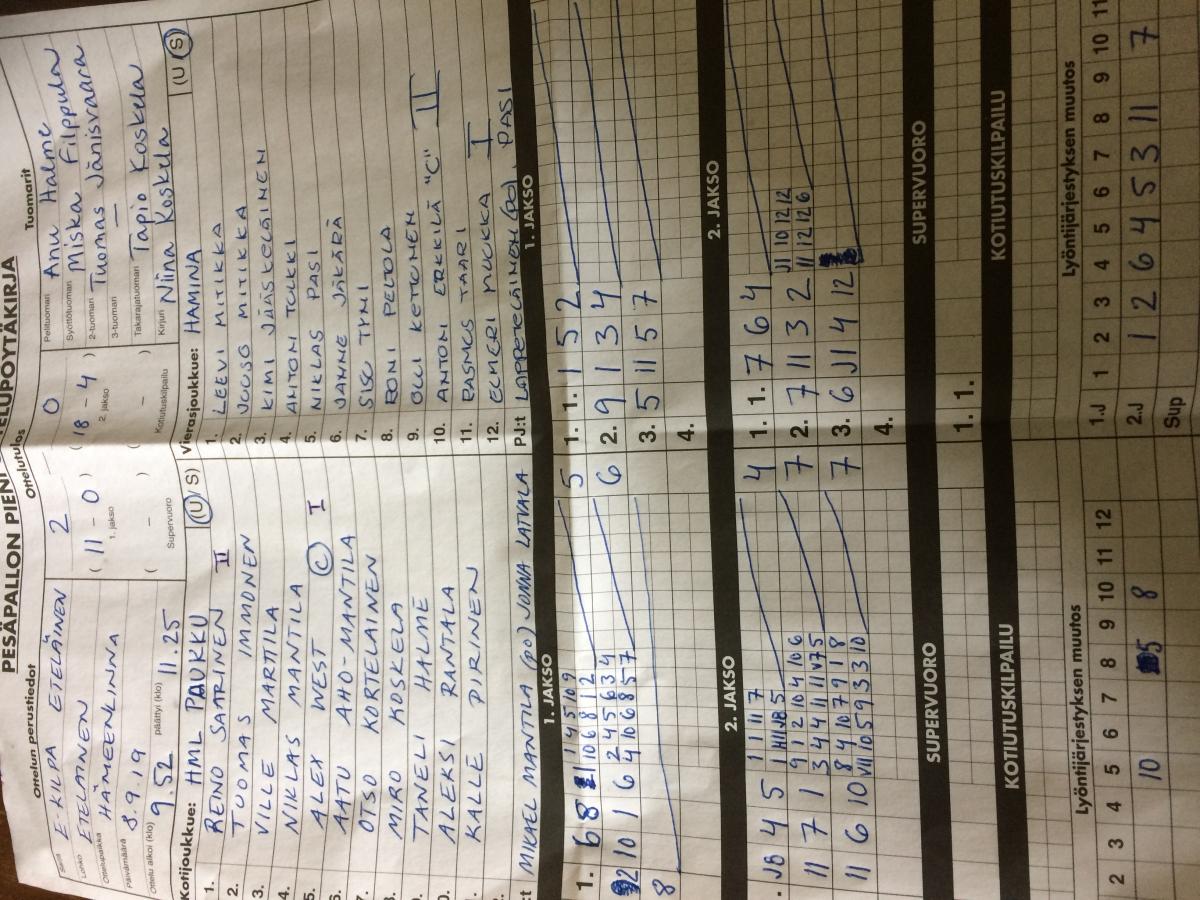 PESÄPALLON PIENI
Ottelun perustiedot
Ottelutulos
Tuomarit
Sarja E-KILPA ETELÄINEN
2 - 0
Pelituomari Anu Halme
Lohko ETELÄINEN
( 11 - 0 ) ( 18 - 4 )
1. jakso 2. jakso
Syöttötuomari Miska Filppula
Ottelupaikka HÄMEENLINNA
2-tuomari Tuomas Jänisvaara
Päivämäärä 8.9.19
( - ) ( - )
3-tuomari —
Ottelu alkoi (klo) 9.52 päättyi (klo) 11.25
Supervuoro Kotiutuskilpailu
Takarajatuomari Tapio Koskela
Kirjuri Niina Koskela
Kotijoukkue: HML PAUKKU (U/S)
1. REINO SAARINEN II
2. TUOMAS IMMONEN
3. VILLE MARTILA
4. NIKLAS MANTILA
5. ALEX WEST C I
6. AATU AHO-MANTILA
7. OTSO KORTELAINEN
8. MIRO KOSKELA
9. TANELI HALME
0. ALEKSI RANTALA
KALLE PIRINEN
PJ:t MIKAEL MANTILA (po) JONNA LATVALA
Vierasjoukkue: HAMINA (U/S)
1. LEEVI MITIKKA
2. JUUSO MITIKKA
3. KIMI JÄÄSKELÄINEN
4. ANTONI TULKKI
5. NIKLAS PASI
6. JANNE JÄKÄRÄ
7. SISU TYNI
8. RONI PELTOLA
9. OLLI KETTUNEN
10. ANTON ERKKILÄ "C" II
11. RASMUS TAARI
12. ELMERI MUKKA I
PJ:t LAPPETELÄINEN (po) PASI
1. JAKSO
1. 6 8
1 4 5 10 9
10 6 8 1 2
5
10 1 6
2 4 5 6 3 4
4 10 6 8 5 7
6
8
1. JAKSO
1. 1. 1 5 2
2. 9 1 3 4
3. 5 11 5 7
4.
2. JAKSO
JB 4 5
1 1 1 1 7
4
11 7 1
9 1 2 10 4 10 6
7
11 6 10
8 4 10 7 9 1 8
7
2. JAKSO
1. 1. 7 6 4
2. 7 11 3 2
J1 10 12 12
11 12 12 6
3. 6 J1 4 12
4.
SUPERVUORO
SUPERVUORO
1. 1.
KOTIUTUSKILPAILU
KOTIUTUSKILPAILU
Lyöntijärjestyksen muutos
2 3 4 5 6 7 8 9 10 11 12
10 5 8
Lyöntijärjestyksen muutos
1.J 1 2 3 4 5 6 7 8 9 10 11
2.J 1 2 6 4 5 3 11 7
Sup